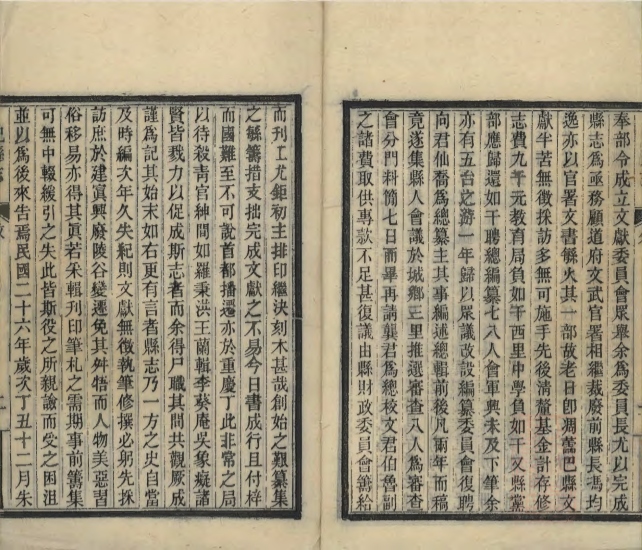 奉部令成立文獻委員會眾舉余為委員長尤以完成
縣志為亟務顧道府文武官署相繼裁廢前縣長馮均
逸亦以官署文書緐火其一部故老日卽凋薷巴縣文
獻半苦無徵採訪多無可施手先後清釐基金計存修
志費九千元教育局負如干西里中學負如干又縣黨
部應歸還如干聘總編纂七八人會軍興未及下筆余
亦有五台之游一年歸以眾議改設編纂委員會復聘
向君仙喬為總纂主其事編述總輯前後凡兩年而稿
竟遂集縣人會議於城鄉三里推選審查八人為審查
會分門料簡七日而畢再請龔君為總校文君伯魯副
之諸費取供專款不足甚復議由縣財政委員會籌給
而刊工尤鉅初主排印繼決刻木甚哉創始之艱纂集
之緐籌措支拙完成文獻之不易今日書成行且付梓
而國難至不可說首都播遷亦於重慶丁此非常之局
以待殺青官紳間如羅秉洪王蘭輯李葵庵吳象癡諸
賢皆戮力以促成斯志者而余得尸職其間共觀厥成
謹為記其始末如右更有言者縣志乃一方之史自當
及時編次年久失紀則文獻無徵執筆修撰必躬先採
訪庶於建寘興廢陵谷變遷免其舛牾而人物美惡習
俗移易亦得其眞若朱輯刊印筆札之需期事前籌集
可無中輟緩引之失此皆斯役之所親譣而受之困沮
並以為後來告焉民國二十六年歲次丁丑十二月朱